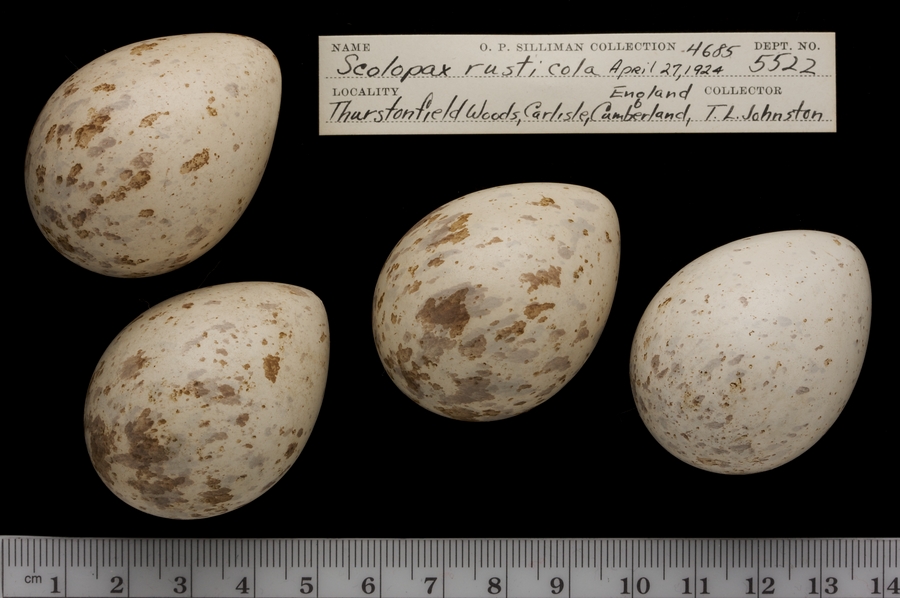 NAME O. P. SILLIMAN COLLECTION 4685 DEPT. NO.
Scolopax rusticola April 27, 1924 5522
LOCALITY England COLLECTOR
Thurstonfield Woods, Carlisle, Cumberland, T. L. Johnston
cm 1 2 3 4 5 6 7 8 9 10 11 12 13 14